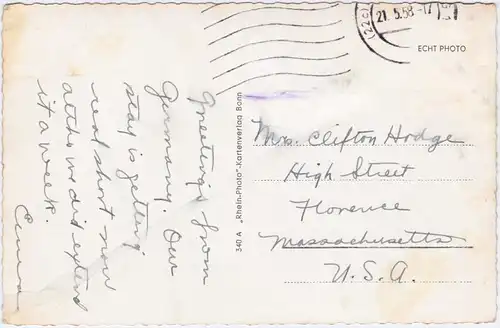 Greetings from
Germany. Our
stay is getting
real short now
altho we did extend
it a week.
(22c)
21.5.58.-17
ECHT PHOTO
340 A „Rhein-Photo"-Kartenverlag Bonn
Mrs. Clifton Hodge
High Street
Florence
Massachusetts
U.S.A.